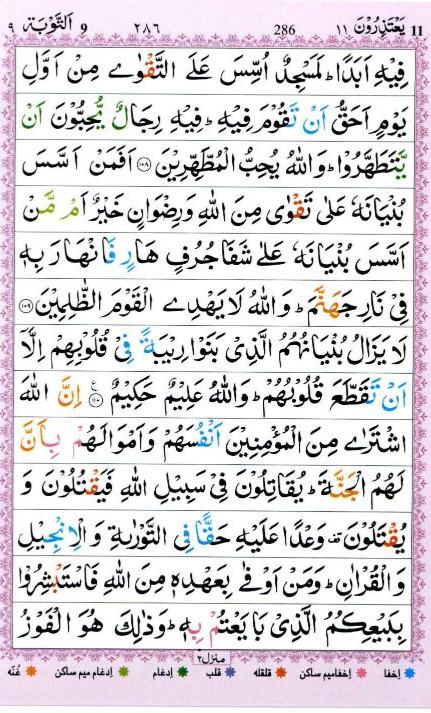 11 يَعْتَذِرُوْنَ ١١ 286 ٢٨٦ 9 اَلتَّوْبَة ٩
فِيْهِ اَبَدًا ؕ لَمَسْجِدٌ اُسِّسَ عَلَى التَّقْوٰى مِنْ اَوَّلِ
يَوْمٍ اَحَقُّ اَنْ تَقُوْمَ فِيْهِ ؕ فِيْهِ رِجَالٌ يُّحِبُّوْنَ اَنْ
يَّتَطَهَّرُوْا ؕ وَاللّٰهُ يُحِبُّ الْمُطَّهِّرِيْنَ ﴿۱۰۸﴾ اَفَمَنْ اَسَّسَ
بُنْيَانَهٗ عَلٰى تَقْوٰى مِنَ اللّٰهِ وَرِضْوَانٍ خَيْرٌ اَمْ مَّنْ
اَسَّسَ بُنْيَانَهٗ عَلٰى شَفَا جُرُفٍ هَارٍ فَانْهَارَ بِهٖ
فِيْ نَارِ جَهَنَّمَ ؕ وَاللّٰهُ لَا يَهْدِى الْقَوْمَ الظّٰلِمِيْنَ ﴿۱۰۹﴾
لَا يَزَالُ بُنْيَانُهُمُ الَّذِيْ بَنَوْا رِيْبَةً فِيْ قُلُوْبِهِمْ اِلَّاۤ
اَنْ تَقَطَّعَ قُلُوْبُهُمْ ؕ وَاللّٰهُ عَلِيْمٌ حَكِيْمٌ ﴿۱۱۰﴾ ع اِنَّ اللّٰهَ
اشْتَرٰى مِنَ الْمُؤْمِنِيْنَ اَنْفُسَهُمْ وَاَمْوَالَهُمْ بِاَنَّ
لَهُمُ الْجَنَّةَ ؕ يُقَاتِلُوْنَ فِيْ سَبِيْلِ اللّٰهِ فَيَقْتُلُوْنَ وَ
يُقْتَلُوْنَ وَعْدًا عَلَيْهِ حَقًّا فِي التَّوْرٰىةِ وَالْاِنْجِيْلِ
وَالْقُرْاٰنِ ؕ وَمَنْ اَوْفٰى بِعَهْدِهٖ مِنَ اللّٰهِ فَاسْتَبْشِرُوْا
بِبَيْعِكُمُ الَّذِيْ بَايَعْتُمْ بِهٖ ؕ وَذٰلِكَ هُوَ الْفَوْزُ
منزل٢
اخفا اخفامیم ساکن قلقله قلب ادغام ادغام میم ساکن غُنّه